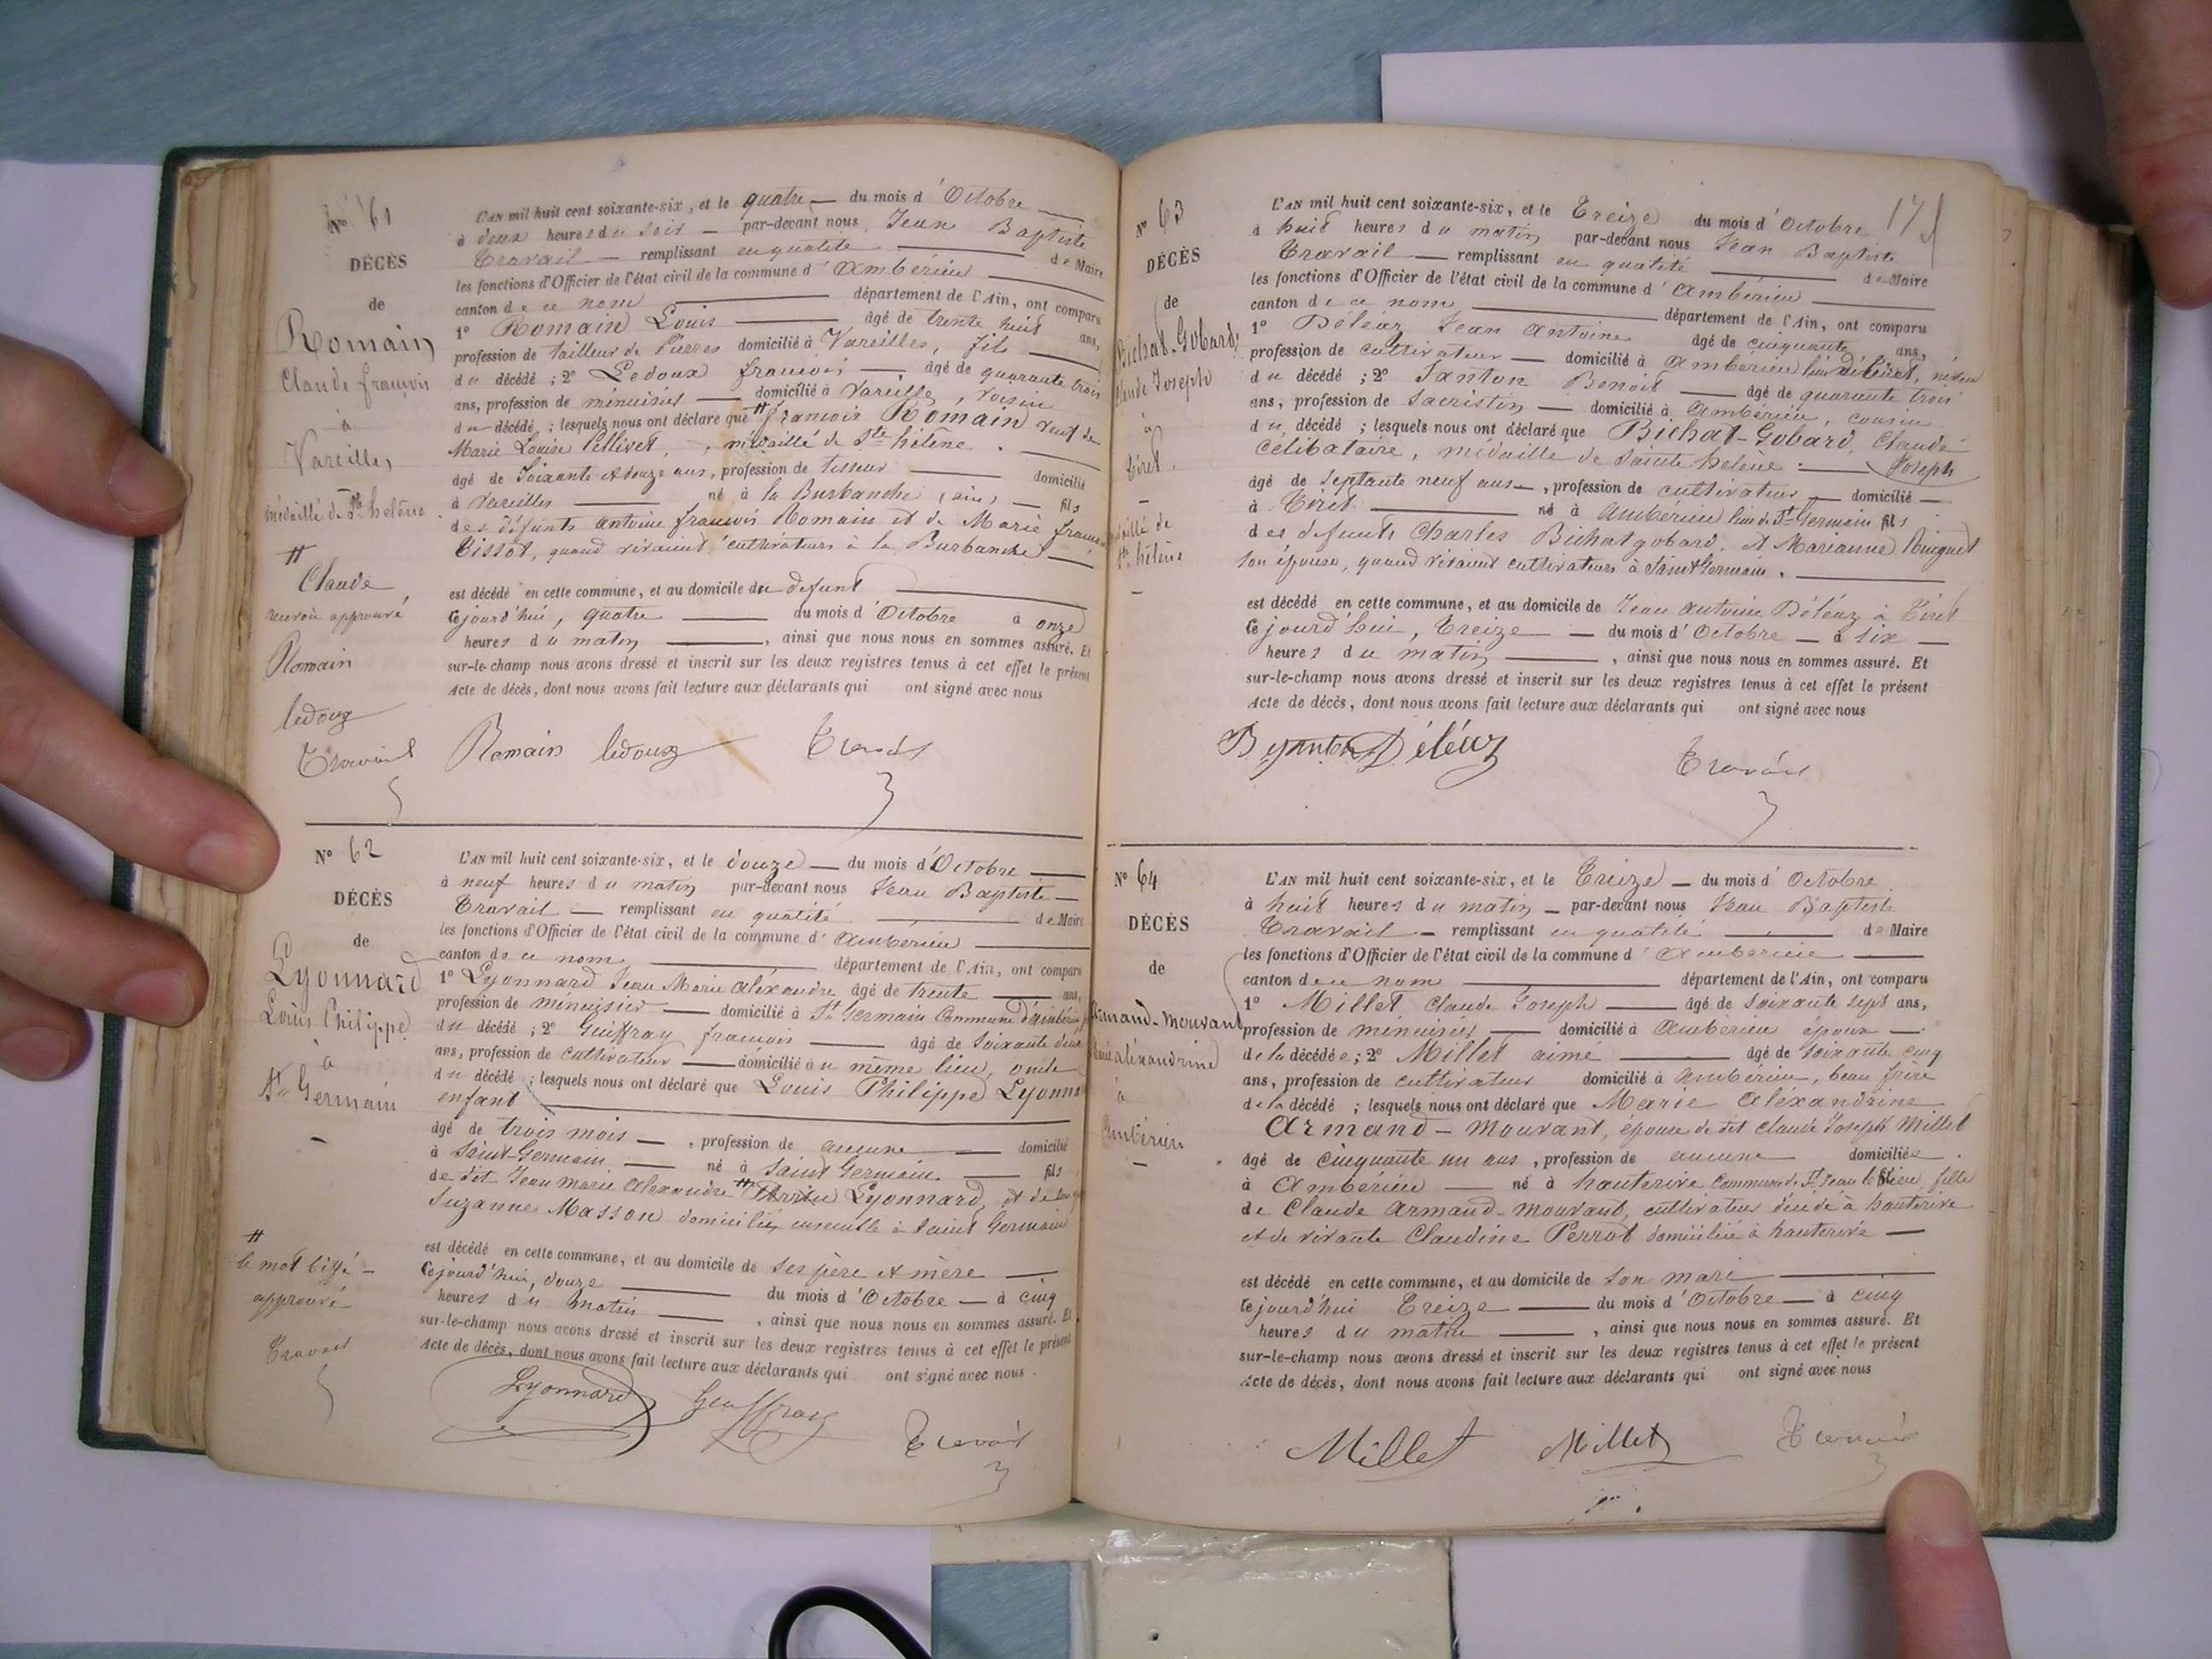 N° 61
DÉCÈS
de
Romain
Claude françois
à
Vareilles
médaillé de Ste hélène
#
Claude,
renvoi approuvé
Romain
ledoux
Travail
L'AN mil huit cent soixante-six, et le quatre — du mois d'Octobre
à deux heures du soir — par-devant nous Jean Baptiste
Travail — remplissant en qualité de Maire
les fonctions d'Officier de l'état civil de la commune d'Ambérieu
canton de ce nom département de l'Ain, ont comparu
1° Romain Louis âgé de trente huit ans,
profession de tailleur de Pierres domicilié à Vareilles, fils
du décédé ; 2° Ledoux françois — âgé de quarante trois
ans, profession de menuisier — domicilié à Vareilles, voisin
du décédé ; lesquels nous ont déclaré que # françois Romain veuf de
Marie Louise Pellivet, médaillé de Ste hélène.
âgé de Soixante et douze ans, profession de tisseur domicilié
à Vareilles né à la Burbanche (ain) — fils
des défunts antoine françois Romain et de Marie
Tissot, quand vivaient cultivateurs à la Burbanche —
est décédé en cette commune, et au domicile du défunt
Cejourd'hui, quatre du mois d'Octobre à onze
heures du matin, ainsi que nous nous en sommes assuré. Et
sur-le-champ nous avons dressé et inscrit sur les deux registres tenus à cet effet le présent
Acte de décès, dont nous avons fait lecture aux déclarants qui ont signé avec nous
Romain ledoux Travail
N° 62
DÉCÈS
de
Lyonnard
Louis Philippe
à
St Germain
—
#
le mot biffé —
approuvé
Travail
L'AN mil huit cent soixante-six, et le douze — du mois d'Octobre
à neuf heures du matin par-devant nous Jean Baptiste —
Travail — remplissant en qualité de Maire
les fonctions d'Officier de l'état civil de la commune d'Ambérieu
canton de ce nom département de l'Ain, ont comparu
1° Lyonnard Jean Marie alexandre âgé de trente ans,
profession de menuisier — domicilié à St Germain Commune d'ambérieu
du décédé ; 2° Guiffray françois âgé de Soixante deux
ans, profession de cultivateur — domicilié au même lieu, oncle
du décédé ; lesquels nous ont déclaré que Louis Philippe
enfant
âgé de trois mois —, profession de aucune domicilié
à Saint-Germain né à Saint Germain fils
de dit Jean Marie alexandre # Lyonnard, et de
Suzanne Masson domiciliés ensemble à Saint Germain
est décédé en cette commune, et au domicile de ses père et mère
Cejourd'hui, douze du mois d'Octobre — à cinq
heures du matin, ainsi que nous nous en sommes assuré. Et
sur-le-champ nous avons dressé et inscrit sur les deux registres tenus à cet effet le présent
Acte de décès, dont nous avons fait lecture aux déclarants qui ont signé avec nous.
Lyonnard Guiffray Travail
N° 63
DÉCÈS
de
Bichat-Gobard,
Claude Joseph
à
Tiret.
—
médaillé de
Ste hélène
—
L'AN mil huit cent soixante-six, et le Treize du mois d'Octobre
à huit heures du matin par-devant nous Jean Baptiste
Travail — remplissant en qualité de Maire
les fonctions d'Officier de l'état civil de la commune d'Ambérieu
canton de ce nom département de l'Ain, ont comparu
1° Déléaz Jean Antoine âgé de cinquante ans,
profession de cultivateur — domicilié à Ambérieu lieu de Tiret, neveu
du décédé ; 2° Santon Benoit âgé de quarante trois
ans, profession de Sacristin — domicilié à Ambérieu, cousin
du décédé ; lesquels nous ont déclaré que Bichat-Gobard, Claude
Joseph
célibataire, médaillé de Sainte hélène.
âgé de Septante neuf ans —, profession de cultivateur — domicilié —
à Tiret né à Ambérieu lieu de St Germain fils
des defunts Charles Bichat gobard, et Marianne
son épouse, quand vivaient cultivateurs à Saint Germain.
est décédé en cette commune, et au domicile de Jean Antoine Déléaz à Tiret
Cejourd'hui, Treize — du mois d'Octobre — à six —
heures du matin, ainsi que nous nous en sommes assuré. Et
sur-le-champ nous avons dressé et inscrit sur les deux registres tenus à cet effet le présent
Acte de décès, dont nous avons fait lecture aux déclarants qui ont signé avec nous
Déléaz Travail
N° 64
DÉCÈS
de
Armand-Mouvant
Marie aléxandrine
à
Ambérieu
—
L'AN mil huit cent soixante-six, et le Treize — du mois d'Octobre
à huit heures du matin — par-devant nous Jean Baptiste
Travail — remplissant en qualité de Maire
les fonctions d'Officier de l'état civil de la commune d'Ambérieu
canton de ce nom département de l'Ain, ont comparu
1° Millet Claude Joseph âgé de soixante sept ans,
profession de menuisier domicilié à Ambérieu époux —
de la décédée ; 2° Millet aimé âgé de soixante cinq
ans, profession de cultivateur domicilié à Ambérieu, beau frère
de la décédé ; lesquels nous ont déclaré que Marie Aléxandrine
Armand - Mouvant, épouse de dit Claude Joseph Millet
âgé de Cinquante un ans, profession de aucune domiciliée
à Ambérieu — né à hauterive Commune de St Jean le Vieux, fille
de Claude Armand-Mouvant, cultivateur décédé à hauterive
et de vivante Claudine Perrot domiciliée à hauterive —
est décédé en cette commune, et au domicile de son mari
Cejourd'hui Treize du mois d'Octobre — à cinq
heures du matin, ainsi que nous nous en sommes assuré. Et
sur-le-champ nous avons dressé et inscrit sur les deux registres tenus à cet effet le présent
Acte de décès, dont nous avons fait lecture aux déclarants qui ont signé avec nous
Millet Millet Travail